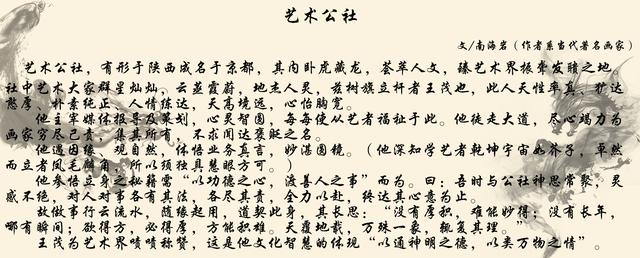 艺术公社
文/南海岩（作者系当代著名画家）
艺术公社，有形于陕西成名于京都，其内卧虎藏龙，荟萃人文，臻艺术界振聋发聩之地。
社中艺术大家群星灿灿，云蒸霞蔚，地杰人灵，兹树旗立杆者王茂也，此人天性率真、犷达
憨厚、朴素纯正、人情练达，天高境远，心怡胸宽。
他主宰媒体报导及策划，心灵智圆，每每使从艺者福祉于此。他徒走大道，尽心竭力为
画家穷尽己责，集其所有，不求闻达褒贬之名。
他遇因缘，观自然，体悟业务真言，妙湛圆镜。（他深知学艺者乾坤宇宙如芥子，卓然
而立者凤毛麟角，所以须独具慧眼方可。）
他参悟立身之秘籍需“以功德之心，渡善人之事”而为。曰：吾时与公社神思常聚，灵
感不绝，对人对事各有其法，各尽其责，全力以赴，终达其心意为止。
故做事行云流水，随缘起用，道契此身，其长思：“没有厚积，难能妙得；没有长年，
哪有瞬间；欲得方，必得厚，方能积雄。天覆地载，万殊一象，观复其理。”
王茂为艺术界啧啧称赞，这是他文化智慧的体现“以通神明之德，以类万物之情”。